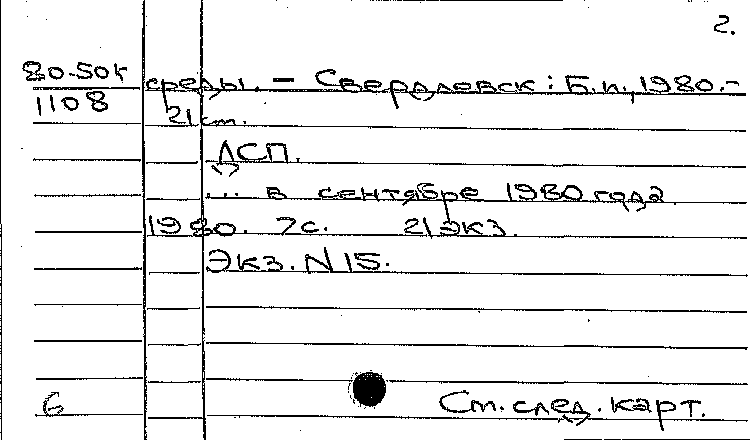 2.
80-50к среды. – Свердловск: Б.и., 1980.–
1108
21 см.
ДСП.
... в сентябре 1980 года
1980. 7с. 21 экз.
Экз. N 15.
6 См. след. карт.